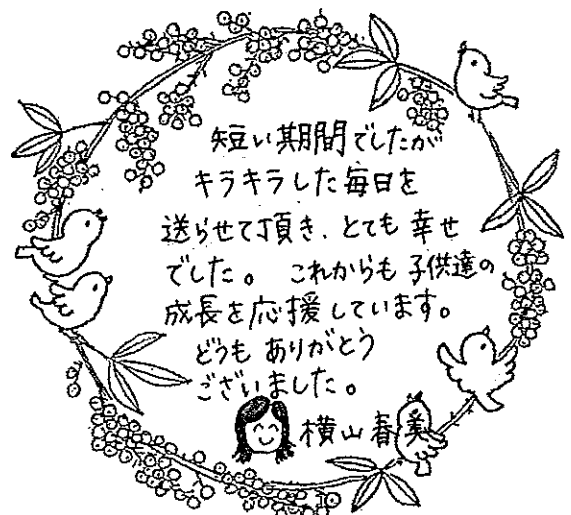 短い期間でしたが
キラキラした毎日を
送らせて頂き、とても幸せ
でした。 これからも子供達の
成長を応援しています。
どうもありがとう
ございました。
横山春美